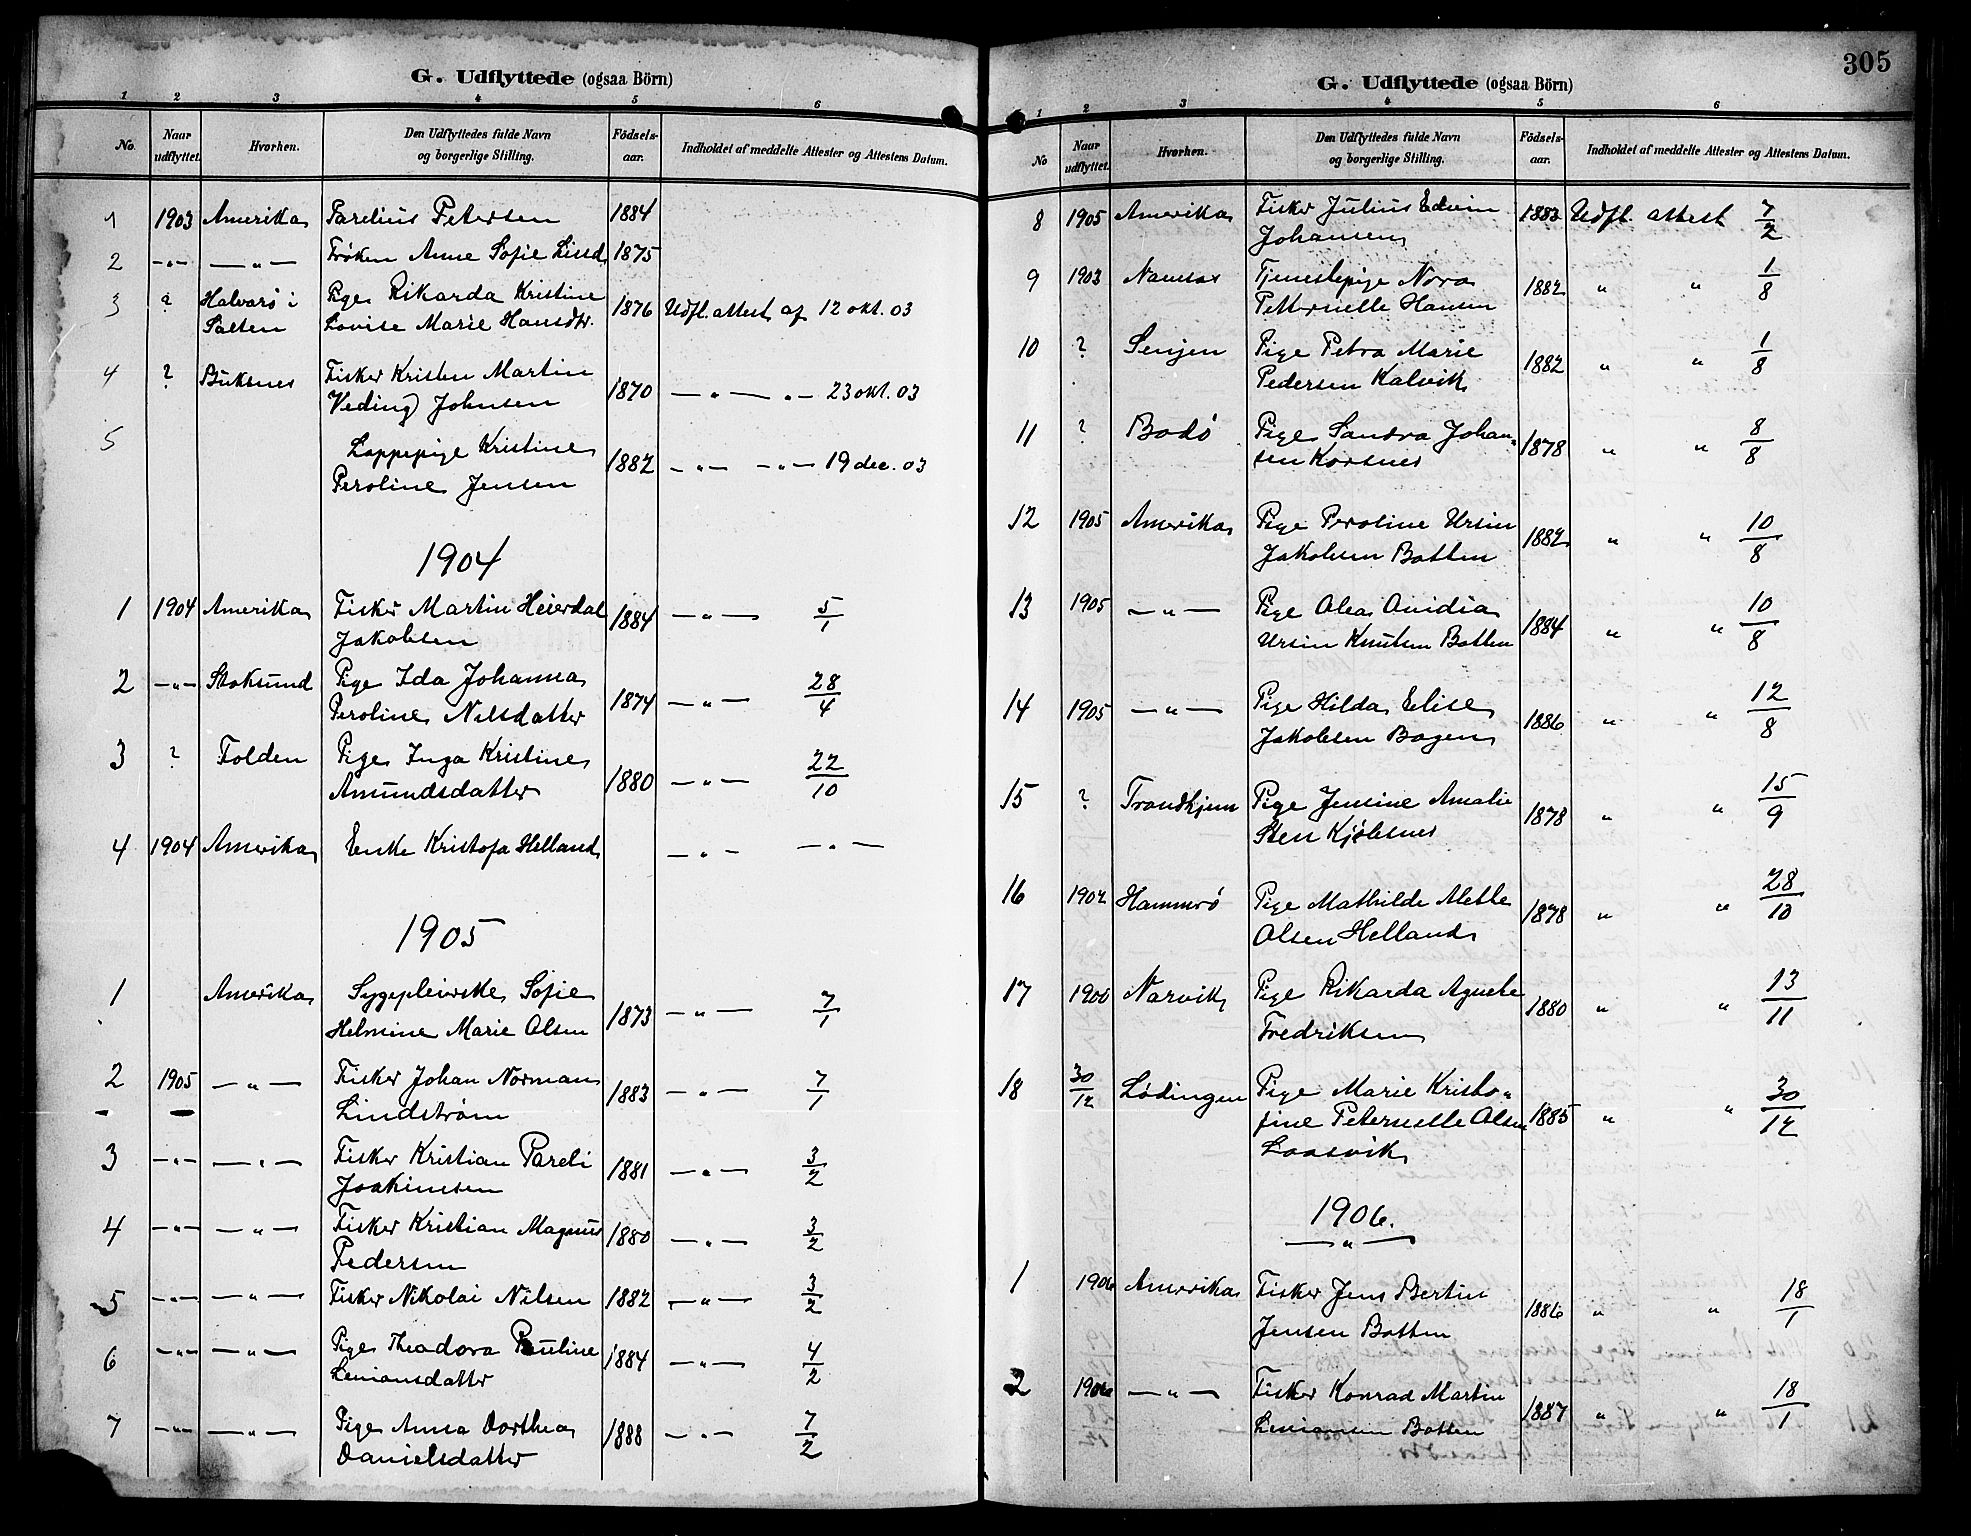 G. Udflyttede (ogsaa Börn)
1 2 3 4 5 6
No. Naar udflyttet. Hvorhen. Den Udflyttedes fulde Navn og borgerlige Stilling. Födsels-aar. Indholdet af meddelte Attester og Attestens Datum.
1 1903 Amerika Parelius Petersen 1884
2 -„- -„- Frøken Anne Sofie Lind 1875
3 ? Halvarø i Pige Rikarda Kristine 1876 Udfl. attest af 12 okt. 03
Salten Lovise Marie Hansdtr.
4 ? Buksnes Fisker Kristen Martin 1870 -„- -„- 23 okt. 03
Veding Johnsen
5 Lappepige Kristine 1882 -„- -„- 19 dec. 03
Peroline Jensen
1904
1 1904 Amerika Fisker Martin Heierdal 1884 -„- 5/1
Jakobsen
2 -„- Stoksund Pige Ida Johanna 1874 -„- 28/4
Peroline Nilsdatter
3 ? Folden Pige Inga Kristine 1880 -„- 22/10
Amundsdatter
4 1904 Amerika Enke Kristofa Helland -„- -„-
1905
1 Amerika Sygepleierske Sofie 1873 -„- 7/1
Helmine Marie Olsen
2 1905 -„- Fisker Johan Norman 1883 -„- 7/1
Lindstrøm
3 -„- -„- Fisker Kristian Pareli 1881 -„- 3/2
Joakimsen
4 -„- -„- Fisker Kristian Magnus 1880 -„- 3/2
Pedersen
5 -„- -„- Fisker Nikolai Nilsen 1882 -„- 3/2
6 -„- -„- Pige Theodora Pauline 1884 -„- 4/2
Leniansdatter
7 -„- -„- Pige Anna Dorthea 1888 -„- 7/2
Danielsdatter
305
G. Udflyttede (ogsaa Börn)
1 2 3 4 5 6
No Naar udflyttet. Hvorhen. Den Udflyttedes fulde Navn og borgerlige Stilling. Födsels-aar. Indholdet af meddelte Attester og Attestens Datum.
8 1905 Amerika Fisker Julius Edvin 1883 Udfl. attest 7/2
Johansen
9 1903 Namsos Tjenestepige Nora 1882 „ „ 1/8
Petternelle Hansen
10 ? Senjen Pige Petra Marie 1882 „ „ 1/8
Pedersen Kalvik
11 ? Bodø Pige Sandra Johan- 1878 „ „ 8/8
sen Korsnes
12 1905 Amerika Pige Peroline Ursin 1882 „ „ 10/8
Jakobsen Botten
13 1905 -„- Pige Alea Ovidia 1884 „ „ 10/8
Ursin Knutsen Botten
14 1905 -„- Pige Hilda Elise 1886 „ „ 12/8
Jakobsen Bogen
15 ? Trondhjem Pige Jensine Amalie 1878 „ „ 15/9
Sten Kjøbsnes
16 1902 Hammerø Pige Mathilde Mette 1878 „ „ 28/10
Olsen Helland
17 1900 Narvik Pige Rikarda Agnete 1880 „ „ 13/11
Fredriksen
18 30/12 Lødingen Pige Marie Kristo- 1885 „ „ 30/12
fine Peternelle Olsen
Laasvik
1906.
-„-
1 1906 Amerika Fisker Jens Bertin 1886 „ „ 18/1
Jensen Botten
2 1906 -„- Fisker Konrad Martin 1887 „ „ 18/1
Leniansen Botten